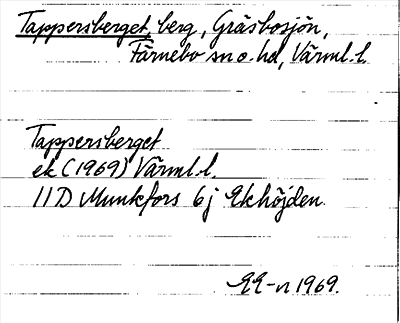 Tappersberget, berg, Gräsbosjön,
Färnebo sn o. hd, Värml. l.
Tappersberget
ek (1969) Värml. l.
11 D Munkfors 6 j Ekhöjden
EE-n 1969.